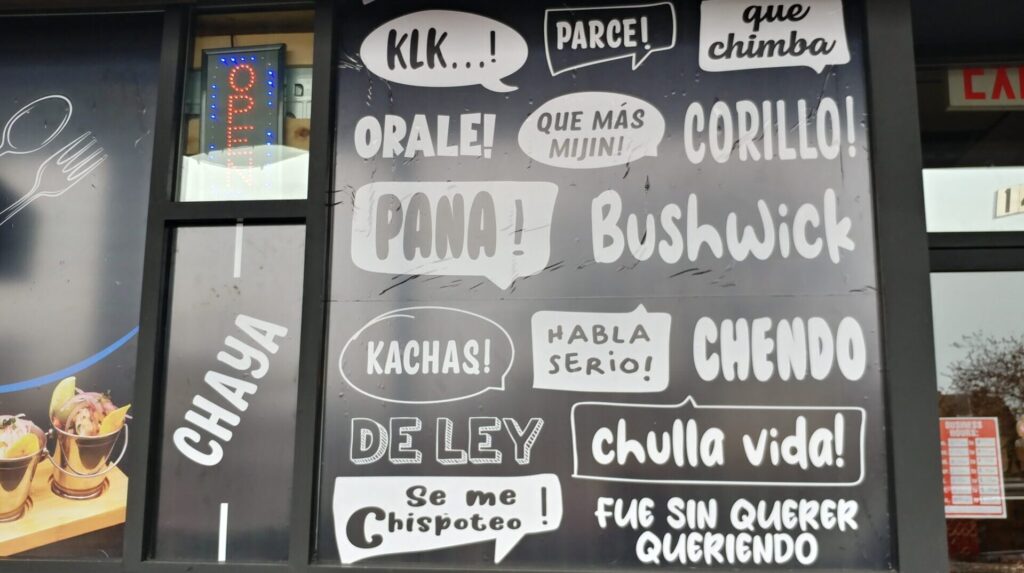 OPEN
CHAYA
KLK...!
PARCE!
que
chimba
ORALE!
QUE MÁS
MIJIN!
CORILLO!
PANA!
Bushwick
KACHAS!
HABLA
SERIO!
CHENDO
DE LEY
chulla vida!
Se me
Chispoteo!
FUE SIN QUERER
QUERIENDO
BUSINESS
HOURS: